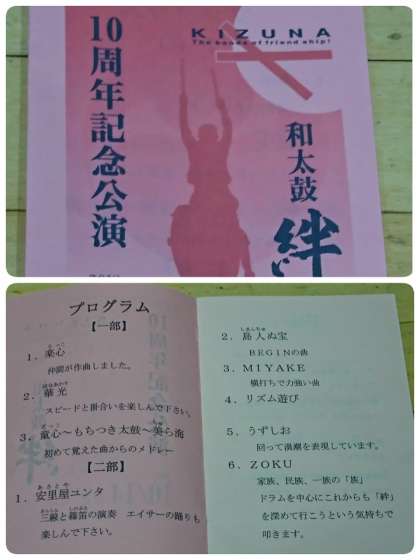 10周年記念公演
KIZUNA
The bonds of friend ship!
和太鼓
絆
プログラム
【一部】
1．楽心
仲間が作曲しました。
2．華光
スピードと掛合いを楽しんで下さい。
3．童心～もちつき太鼓～美ら海
初めて覚えた曲からのメドレー
【二部】
1．安里屋ユンタ
三線と篠笛の演奏　エイサーの踊りも
楽しんで下さい。
2．島人ぬ宝
BEGINの曲
3．MIYAKE
横打ちで力強い曲
4．リズム遊び
5．うずしお
回って渦潮を表現しています。
6．ZOKU
家族、民族、一族の「族」
ドラムを中心にこれからも「絆」
を深めて行こうという気持ちで
叩きます。